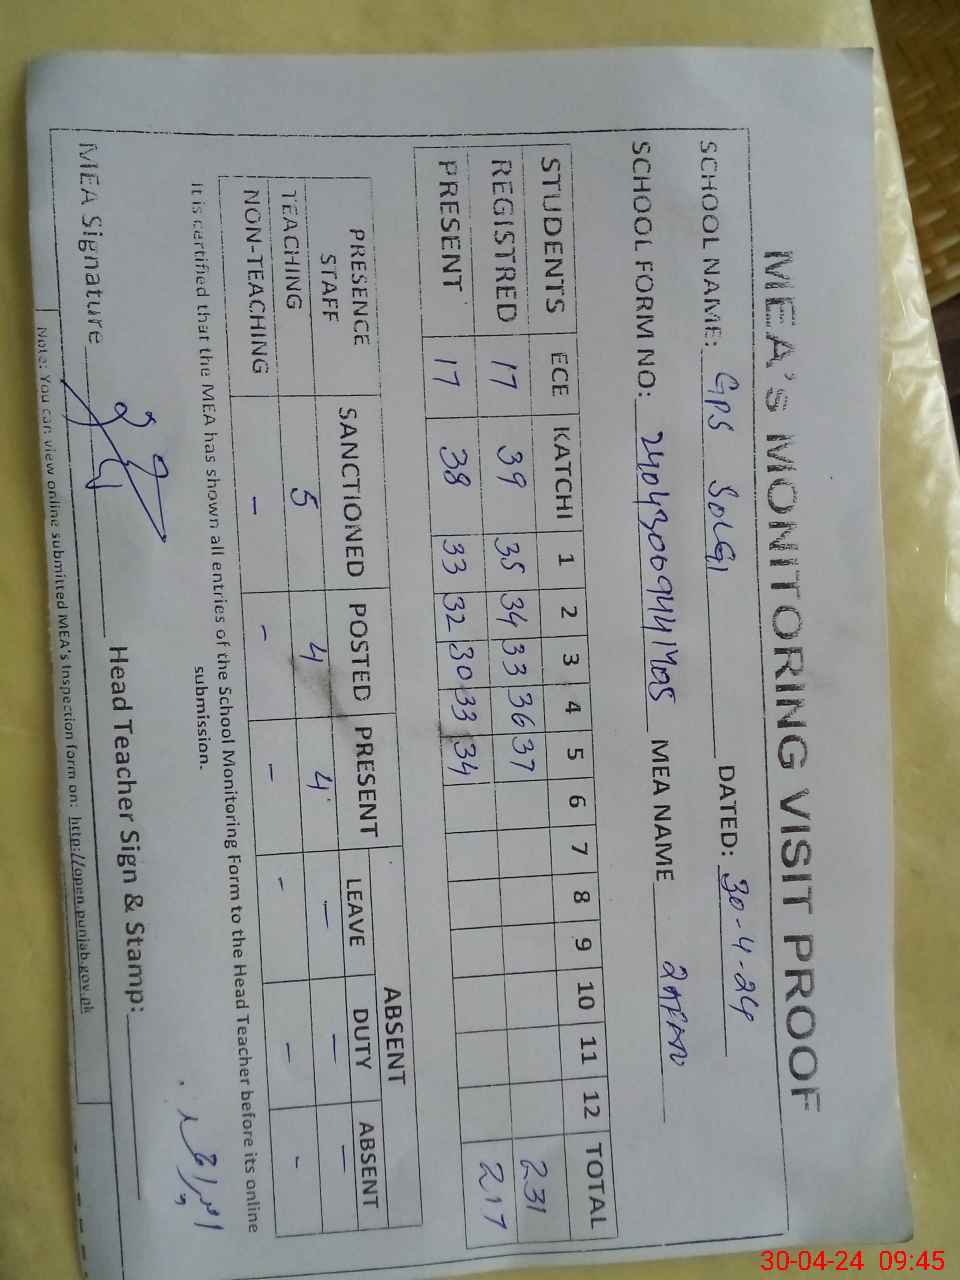 MEA'S MONITORING VISIT PROOF
SCHOOL NAME: GPS SOLGI DATED: 30-4-24
SCHOOL FORM NO: MEA NAME
STUDENTS ECE KATCHI 1 2 3 4 5 6 7 8 9 10 11 12 TOTAL
REGISTRED 17 39 35 34 33 36 37 231
PRESENT 17 38 33 32 30 33 34 217
PRESENCE STAFF SANCTIONED POSTED PRESENT ABSENT
LEAVE DUTY ABSENT
TEACHING 5 4 4 - - -
NON-TEACHING - - - - - -
It is certified that the MEA has shown all entries of the School Monitoring Form to the Head Teacher before its online
submission.
MEA Signature Head Teacher Sign & Stamp:
Note: You can view online submitted MEA's Inspection form on: http://open.punjab.gov.pk
30-04-24 09:45